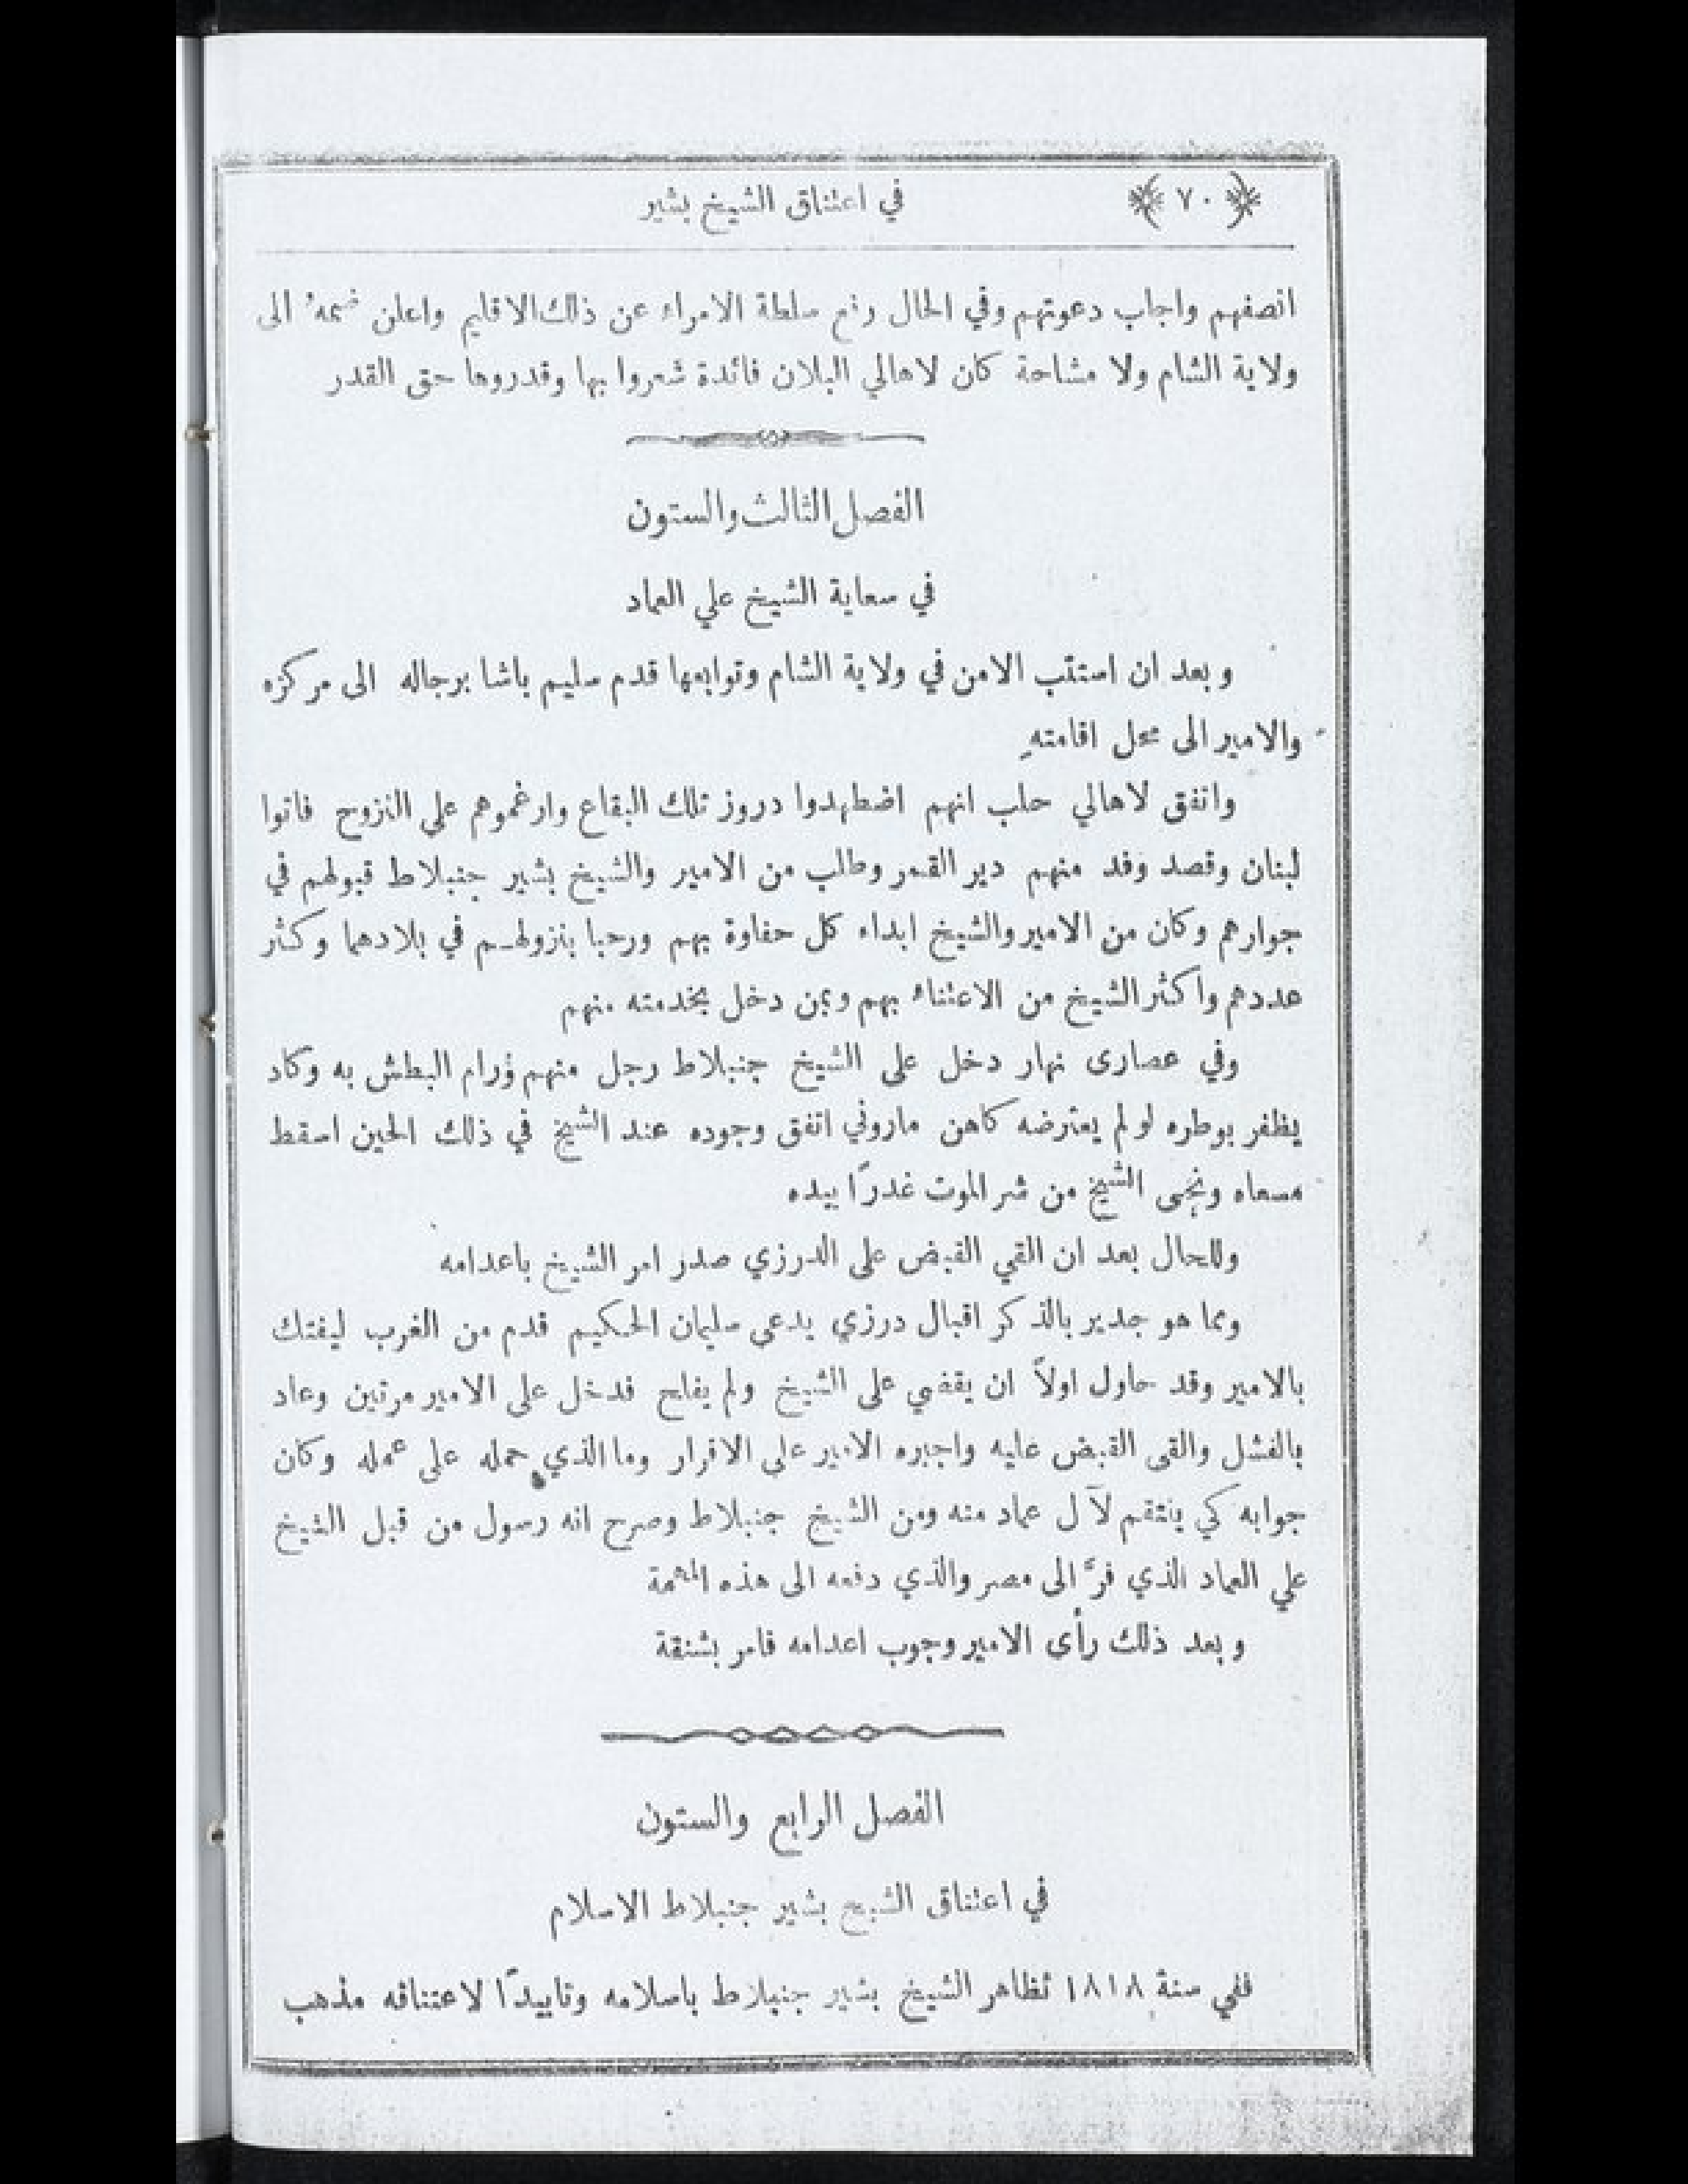 ﴿ ٧٠ ﴾ في اعتناق الشيخ بشير
انصفهم واجاب دعوتهم وفي الحال رفع سلطة الامراء عن ذلك الاقليم واعلن ضمهُ الى
ولاية الشام ولا مشاحة كان لاهالي البلان فائدة شعروا بها وقدروها حق القدر
الفصل الثالث والستون
في سعاية الشيخ علي العماد
وبعد ان استتب الامن في ولاية الشام وتوابعها قدم سليم باشا برجاله الى مركزه
والامير الى محل اقامتهِ
واتفق لاهالي حلب انهم اضطهدوا دروز تلك البقاع وارغموهم على النزوح فاتوا
لبنان وقصد وفد منهم دير القمر وطلب من الامير والشيخ بشير جنبلاط قبولهم في
جوارهم وكان من الامير والشيخ ابداء كل حفاوة بهم ورحبا بنزولهم في بلادهما وكثر
عددهم واكثر الشيخ من الاعتناء بهم وبمن دخل بخدمته منهم
وفي عصارى نهار دخل على الشيخ جنبلاط رجل منهم ورام البطش به وكاد
يظفر بوطره لو لم يعترضه كاهن ماروني اتفق وجوده عند الشيخ في ذلك الحين اسقط
مسعاه ونجى الشيخ من شر الموت غدرًا بيده
وللحال بعد ان القي القبض على الدرزي صدر امر الشيخ باعدامه
ومما هو جدير بالذكر اقبال درزي يدعى سليمان الحكيم قدم من الغرب ليفتك
بالامير وقد حاول اولاً ان يقضي على الشيخ ولم يفلح فدخل على الامير مرتين وعاد
بالفشل والقى القبض عليه واجبره الامير على الاقرار وما الذي حمله على عمله وكان
جوابه كي ينتقم لآل عماد منه ومن الشيخ جنبلاط وصرح انه رسول من قبل الشيخ
علي العماد الذي فرَّ الى مصر والذي دفعه الى هذه المهمة
وبعد ذلك رأى الامير وجوب اعدامه فامر بشنقة
الفصل الرابع والستون
في اعتناق الشيخ بشير جنبلاط الاسلام
ففي سنة ١٨١٨ تظاهر الشيخ بشير جنبلاط باسلامه وتاييدًا لاعتناقه مذهب